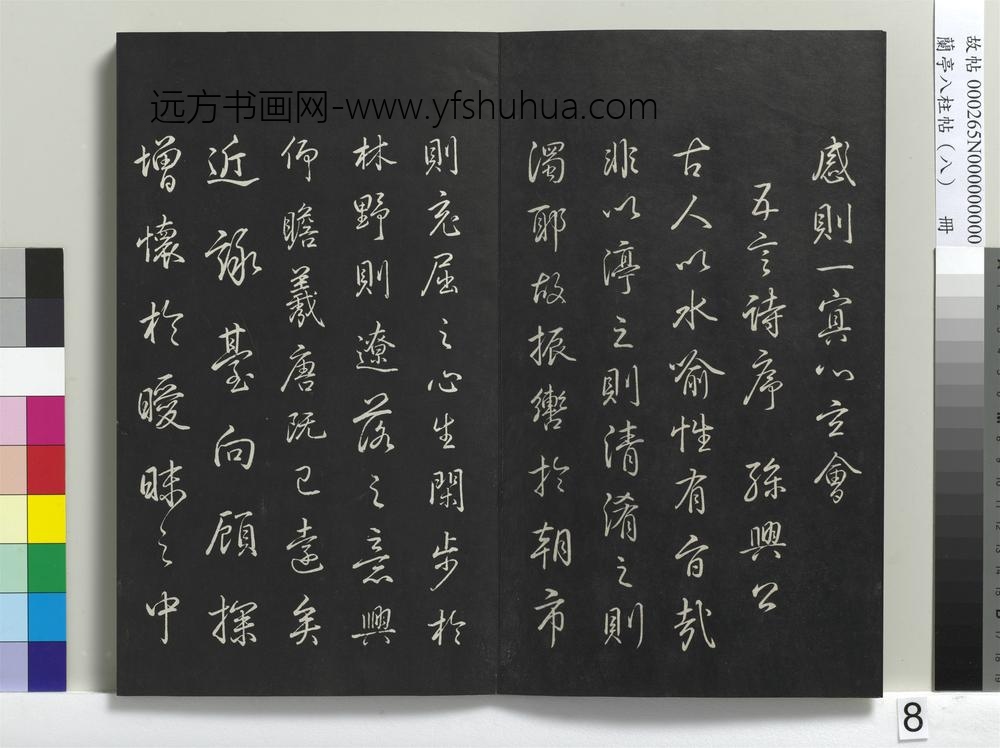 感則一冥心立會
五言詩序 孫興公
古人以水喻性有旨哉
非以渟之則清淆之則
濁耶故振轡於朝市
則充屈之心生閑步於
林野則遼落之意興
仰瞻羲唐既已遠矣
近詠臺向顧探
增懷於曖昧之中
远方书画网-www.yfshuhua.com
故帖 000265N000000000
蘭亭八柱帖(八) 冊
8